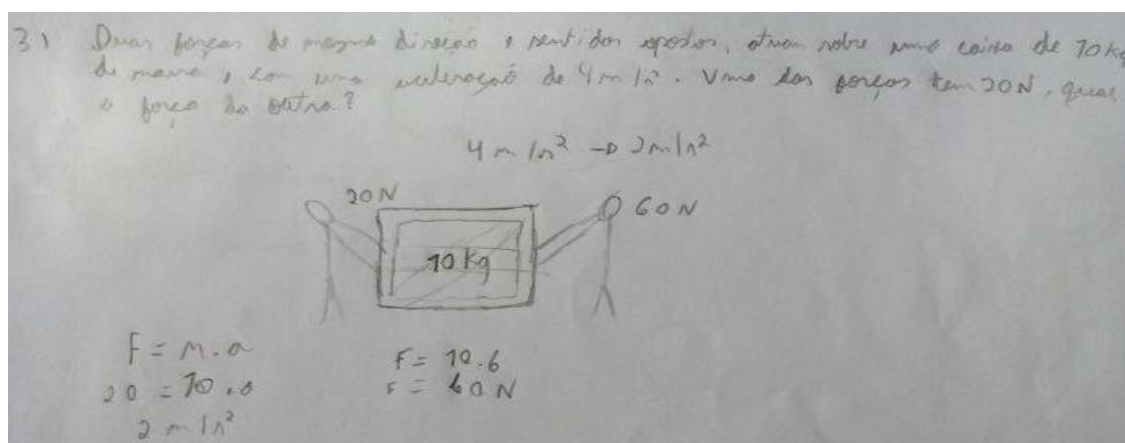 3) Duas forças de mesma direção e sentidos opostos, atuam sobre uma caixa de 10kg
de massa, com uma aceleração de 4m/s². Uma das forças tem 20N, qual
a força da outra?
4m/s² → 2m/s²
20N
60N
10kg
F = m.a
F = 10.6
20 = 10.a
F = 60N
2m/s²